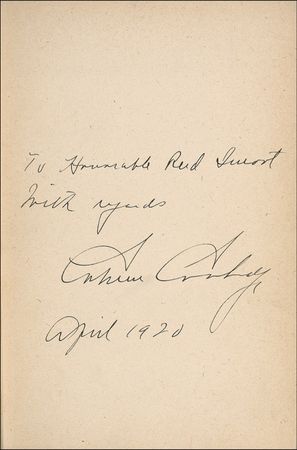 To Honorable Reed Smoot
With regards
Calvin Coolidge
April 1920